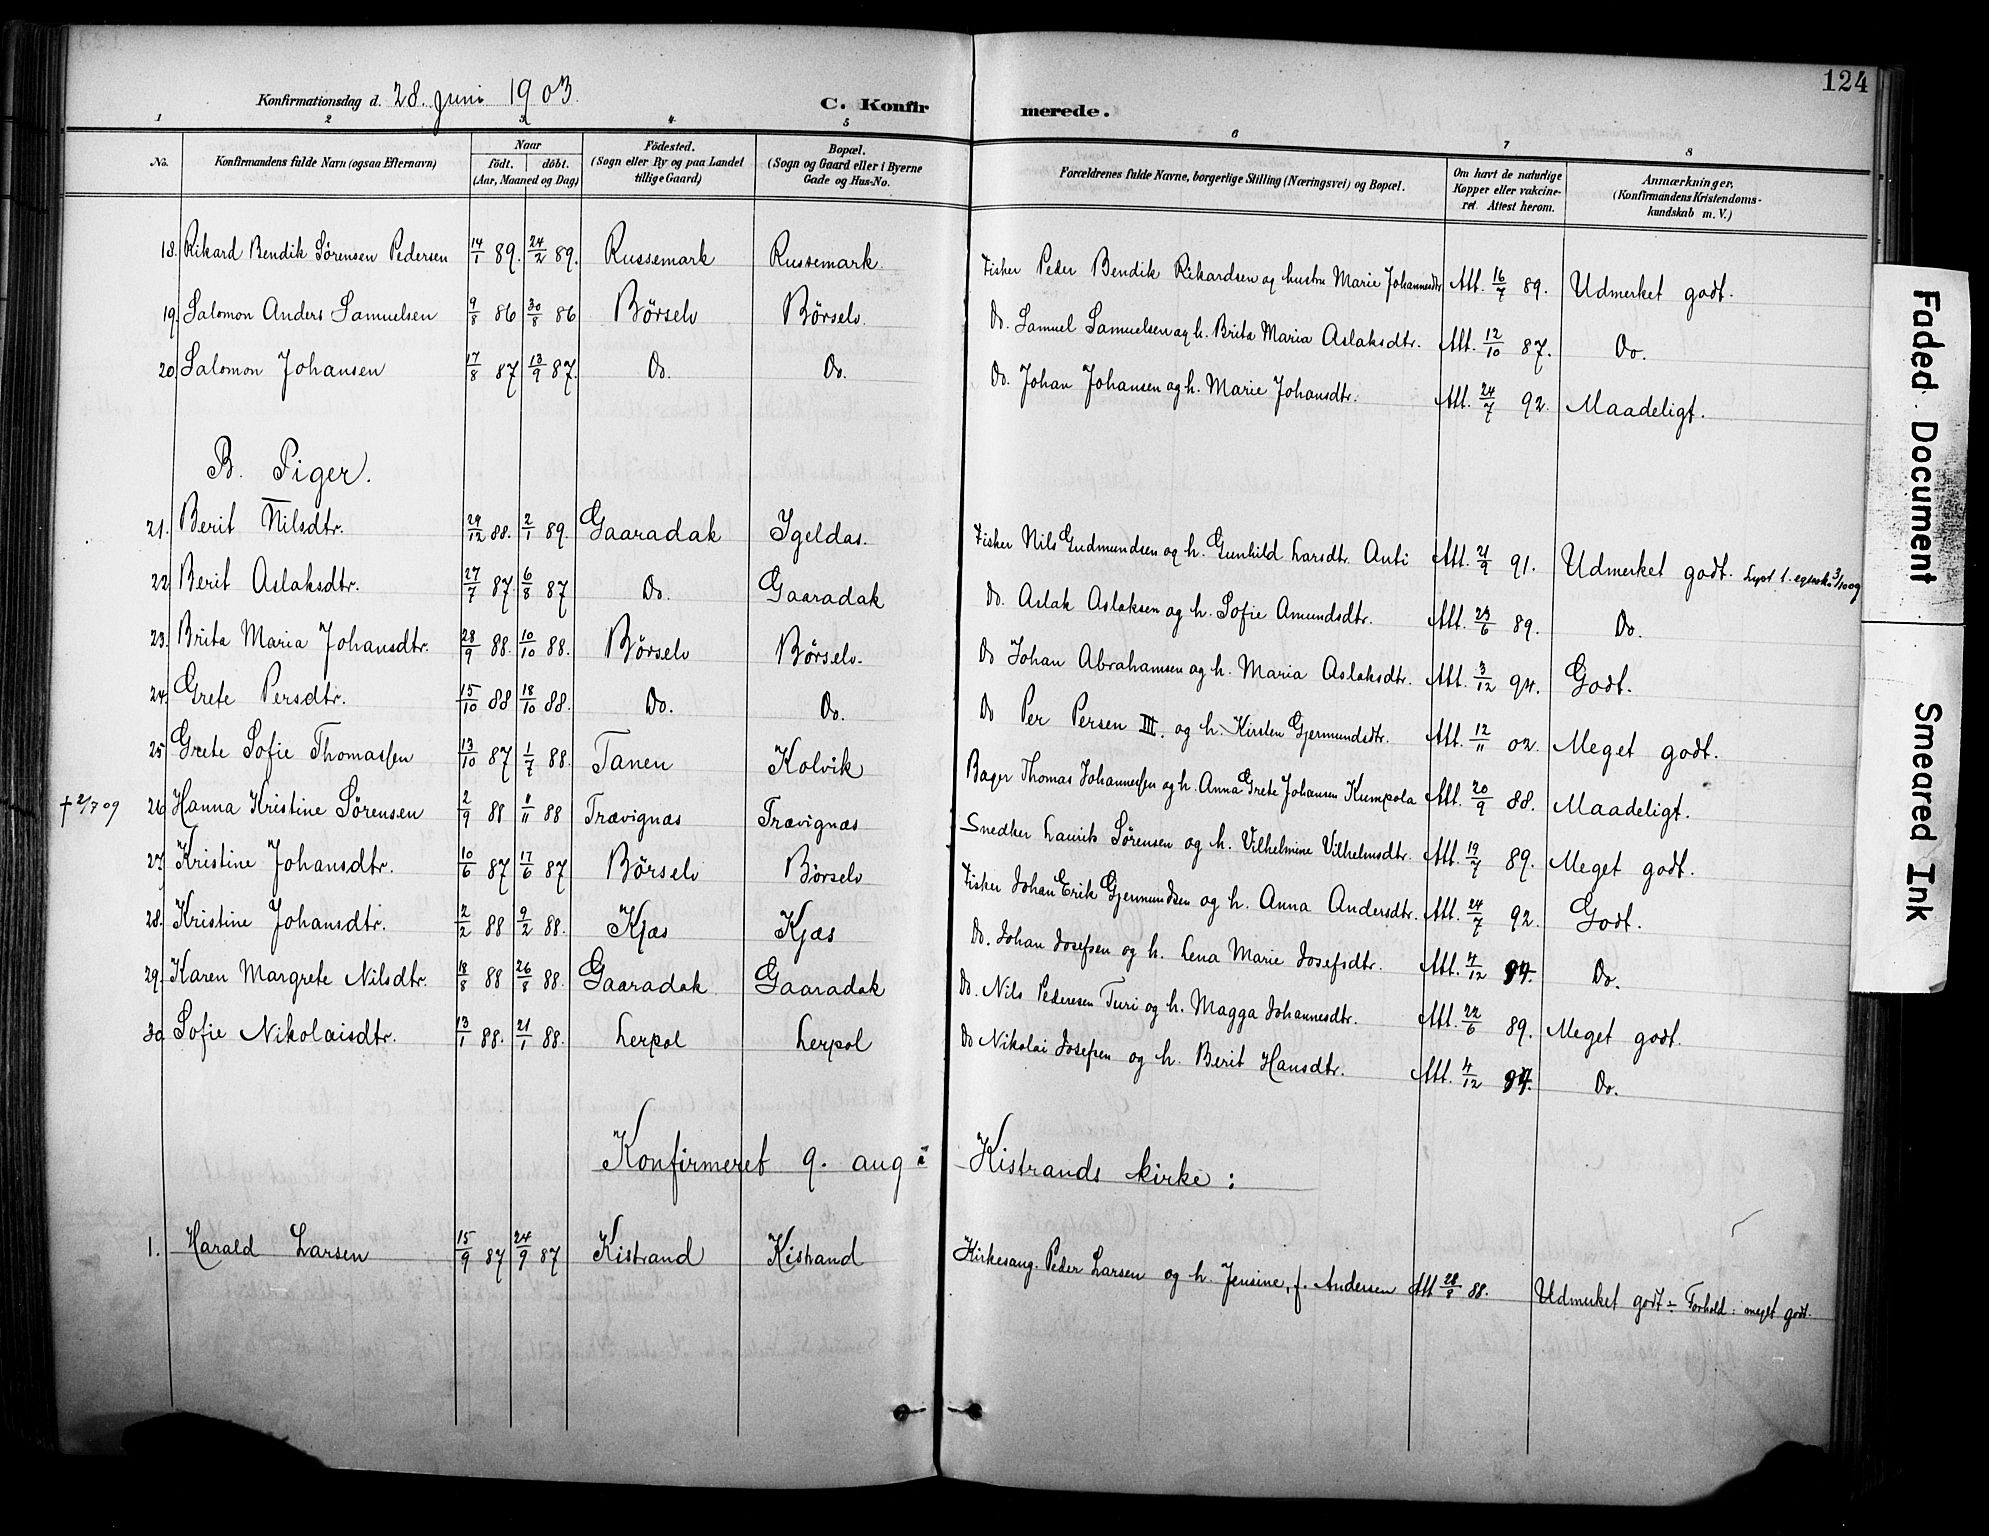 124
Konfirmationsdag d. 28. juni 1903.
C. Konfirmerede.
1 2 3 4 5 6 7 8
No. Konfirmandens fulde Navn (ogsaa Efternavn) Naar født. døbt. (Aar, Maaned og Dag) Födested. (Sogn eller By og paa Landet tillige Gaard) Bopæl. (Sogn og Gaard eller i Byerne Gade og Hus-No. Forældrenes fulde Navne, borgerlige Stilling (Næringsvei) og Bopæl. Om havt de naturlige Kopper eller vakcineret. Attest herom. Anmærkninger. (Konfirmandens Kristendomskundskab m. V.)
18. Rikard Bendik Sørensen Pedersen 14/1 89. 24/2 89. Russemark Russemark. Fisker Peder Bendik Rikardsen og hustru Marie Johannesdtr Att. 16/7 89. Udmerket godt.
19. Salomon Anders Samuelsen 9/8 86 30/8 86 Börselv Börselv. Do. Samuel Samuelsen og h. Brita Maria Aslaksdtr. Att. 12/10 87. Do.
20. Salomon Johansen 17/8 87 13/9 87. Do. Do. Do. Johan Johansen og h. Marie Johansdtr. Att. 24/7 92. Maadeligt.
B. Piger.
21. Berit Nilsdtr. 29/12 88. 2/1 89. Gaaradak Igeldas. Fisker Nils Gudmundsen og h. Gunhild Larsdtr. Anti Att. 91. Udmerket godt. Lyst 1.
22 Berit Aslaksdtr. 27/7 87. 6/8 87 Do. Gaaradak Do. Aslak Aslaksen og h. Sofie Amundsdtr. Att. 23/6 89. Do.
23. Brita Maria Johansdtr. 28/9 88. 10/10 88. Börselv Börselv. Do Johan Abrahamsen og h. Maria Aslaksdtr. Att. 3/12 94. Godt.
24. Grete Persdtr. 15/10 88 18/10 88. Do. Do. Do Per Persen III. og h. Kirsten Gjermundsdtr. Att. 12/11 02. Meget godt.
25 Grete Sofie Thomassen 13/10 87 1/7 88. Tanen Kolvik Bager Thomas Johannessen og h. Anna Grete Johansen Kumpola Att. 20/9 88. Maadeligt.
† 2/7 09 26 Hanna Kristine Sørensen 2/9 88 11/11 88 Trævignæs Trævignæs Snedker Laurits Sørensen og h. Vilhelmine Vilhelmsdtr. Att. 19/7 89. Meget godt.
27. Kristine Johansdtr. 10/6 87 17/6 87 Börselv Börselv Fisker Johan Erik Gjermundsen og h. Anna Andersdtr. Att. 24/7 92. Godt.
28. Kristine Johansdtr. 2/2 88 9/2 88. Kjæs Kjæs Do. Johan Josefsen og h. Lena Marie Josefsdtr. Att. 4/12 Do.
29. Karen Margrete Nilsdtr. 18/8 88 26/8 88. Gaaradak Gaaradak Do. Nils Pedersen Turi og h. Magga Johannesdtr. Att. 22/6 89. Meget godt.
30 Sofie Nikolaisdtr. 13/1 88. 21/1 88. Lerpol Lerpol Do Nikolai Josefsen og h. Berit Hansdtr. Att. 4/12 Do.
Konfirmeret 9. aug i Kistrands kirke:
1. Harald Larsen 15/9 87 24/9 87 Kistrand Kistrand Kirkesang. Peder Larsen og h. Jensine, f. Andersen Att 28/8 88. Udmerket godt - Forhold: meget godt.
Faded Document
Smeared Ink